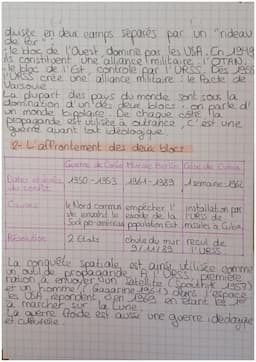 divisée en deux camps séparés par un "rideau
de fer".
- le bloc de l'Ouest dominé par les USA. En 1949
ils constituent une alliance militaire : l'OTAN.
- le bloc de l'Est, contrôlé par l'URSS. Dès 1955
l'URSS crée une alliance militaire : le Pacte de
Varsovie.
La plupart des pays du monde sont sous la
domination d'un des deux blocs : on parle d'
un monde bipolaire. De chaque côté la
propagande est utilisée à outrance, c'est une
guerre avant tout idéologique.
2- L'affrontement des deux blocs
Guerre de Corée Mur de Berlin Crise de Cuba
Dates 1950-1953 1961-1989 1 semaine 1962
du conflit
Causes le Nord communiste empêcher l' installation par
envahit le exode de la l'URSS de
Sud pro-américain population Est missiles à Cuba
Résolution 2 Etats chute du mur recul de
9/11/1989 l'URSS
La conquête spatiale est ainsi utilisée comme
un outil de propagande. L'URSS, première
nation à envoyer un satellite (Spoutnik 1957)
et un homme (Gagarine 1961) dans l'espace
les USA répondent en 1969 en étant les 1er
à marcher sur la Lune.
La guerre froide est aussi une guerre idéologique
et culturelle.